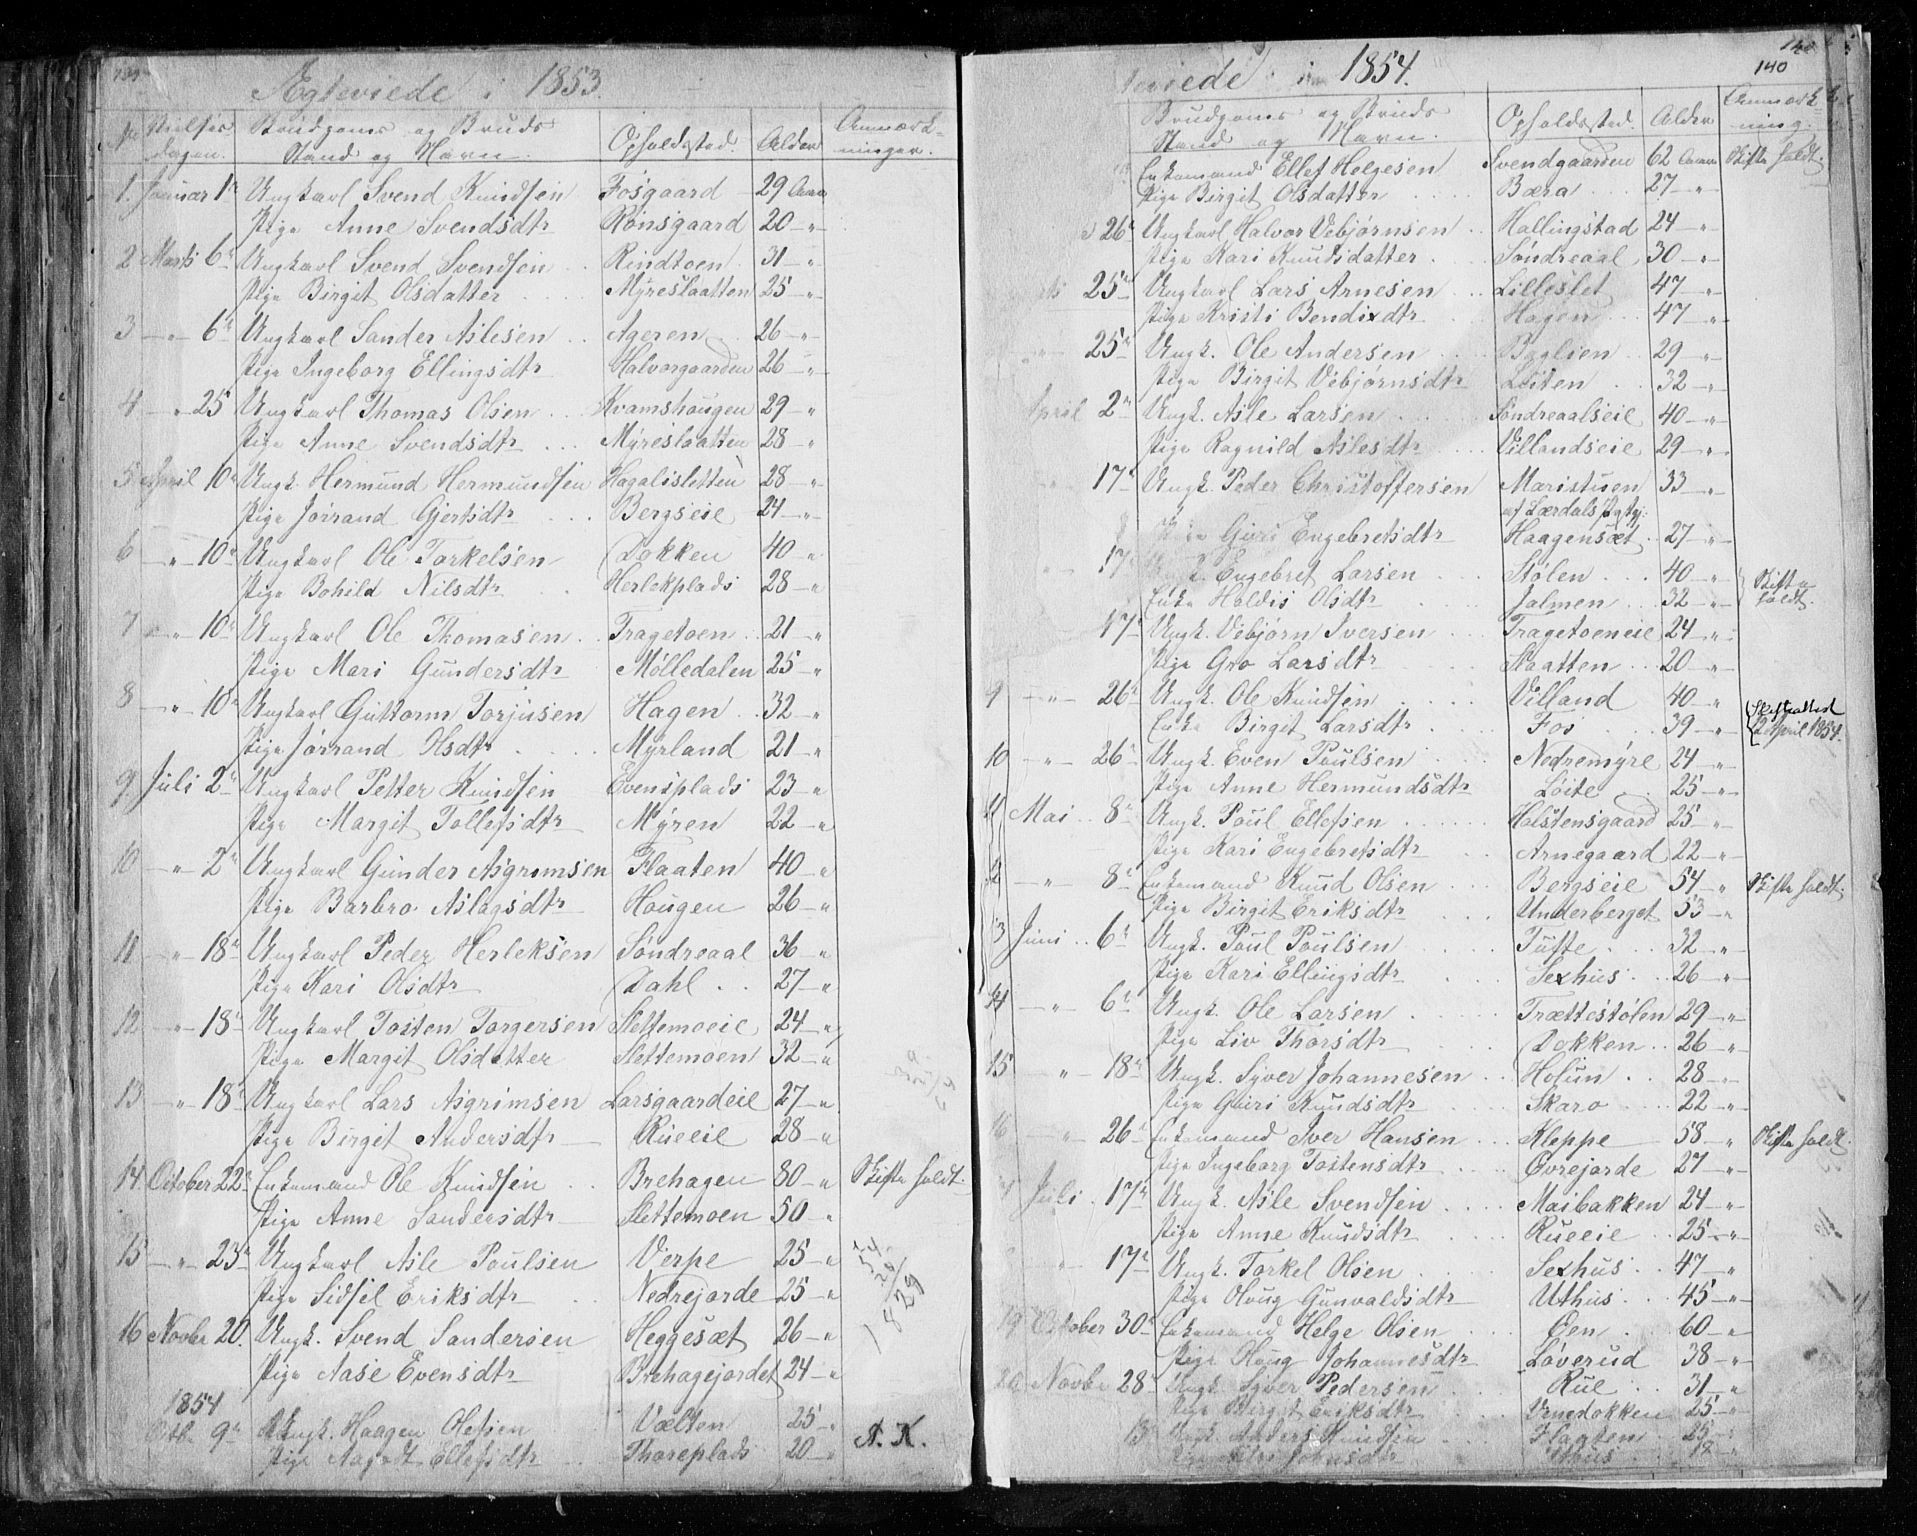 Ægteviede i 1853.
No Vielses Brudgoms og Bruds Opholdssted. Alder Anmærk-
dagen. Stand og Navn. ninger.
1. Januar 1te Ungkarl Svend Knudsen Fosgaard 29 Aar
Pige Anne Svendsdtr Rønsgaard 20 - "
2 Marts 6te Ungkarl Svend Svendsen Rindtoen 31 - "
Pige Birgit Olsdatter Myreslaatten 25 - "
3 - " - 6te Ungkarl Sander Aslesen Ageren 26 - "
Pige Ingeborg Ellingsdtr Halvorgaarden 26 - "
4 - " 25 Ungkarl Thomas Olsen Kvamshougen 29 - "
Pige Anne Svendsdtr Myreslaatten 28 - "
5 April 10de Ungk. Hermund Hermundsen Hagalisletten 28 - "
Pige Jørrand Gjertsdtr Bergseie 24 - "
6 - " - 10de Ungkarl Ole Torkelsen Dokken 40 - "
Pige Bohild Nilsdtr Herlekplads 28 - "
7 - " - 10de Ungkarl Ole Thomasen Tragetoen 21 - "
Pige Mari Gundersdtr Mølledalen 25 - "
8 - " - 10de Ungkarl Guttorm Torjusen Hagen 32 - "
Pige Jørrand Olsdtr Myrland 21 - "
9 Juli 2den Ungkarl Petter Knudsen Evensplads 23 - "
Pige Margit Tollefsdtr Myren 22 - "
10 - " 2den Ungkarl Gunder Asgrimsen Flaaten 40 - "
Pige Barbro Aslagsdtr Hougen 26 - "
11 - " 18de Ungkarl Peder Herleksen Søndreaal 36 - "
Pige Kari Olsdtr Dahl 27 - "
12 - " 18de Ungkarl Tosten Torgersen Slettemoeie 24 - "
Pige Margit Olsdatter Slettemoen 32 - "
13 - " 18de Ungkarl Lars Asgrimsen Larsgaardeie 27 - "
Pige Birgit Andersdtr Rueeie 28 - "
14 October 22de Enkemand Ole Knudsen Brehagen 80 - " Skifte holdt.
Pige Anne Sandersdtr Slettemoen 50 - "
15 - " - 23de Ungkarl Asle Poulsen Verpe 25 - "
Pige Sidsel Eriksdtr Nedrejorde 25 - "
16 Novbr 20. Ungk. Svend Sandersen Heggesæt 26 - "
Pige Aase Evensdtr Brehagejordet 24 - "
1854
Octbr 9de Ungk. Haagen Olefsen Vælten 25 - "
Pige Aagodt Ellefsdtr Thoreplads 20 - " A. K.
140
viede i 1854.
Brudgoms og Bruds Opholdssted. Alder Anmærk
Stand og Navn. ning.
Enkemand Ellef Helgesen Svendgaarden 62 Aar Skifte holdt.
Pige Birgit Olsdatter Bæra 27 - "
26de Ungkarl Halvor Vebjørnsen Hallingstad 24 - "
Pige Kari Knudsdatter Søndreaal 30 - "
25de Ungkarl Lars Arnesen Lilleslet 47 - "
Pige Kristi Bendixdtr Hagen 47 - "
25de Ungk. Ole Andersen Baglien 29 - "
Pige Birgit Vebjørnsdtr Løiten 32 - "
April 2den Ungk. Asle Larsen Søndreaalseie 40 - "
Pige Ragnild Aslesdtr Villandseie 29 - "
17de Ungk. Peder Christoffersen Maristuen 33 - "
af Lærdals Pgtgj.
Pige Guri Engebretsdtr Haagensæt 27 - "
17de Engebret Larsen Stølen 40 - " Skifte
Enke Holdis Olsdtr Jalmen 32 - " holdt.
17de Ungk. Vebjørn Iversen Tragetoeneie 24 - "
Pige Gro Larsdtr Slaatten 20 - "
9 - " - 26de Ungk. Ole Knudsen Villand 40 - " Skifteattest
Enke Birgit Larsdtr Fos 39 - " 2 April 1854.
10 - " - 26de Ungk. Even Poulsen Nedremyre 24 - "
Pige Anne Hermundsdtr Løite 25 - "
11 Mai 8de Ungk. Poul Ellefsen Holstensgaard 25 - "
Pige Kari Engebretsdtr Arnegaard 22 - "
12 - " - 8de Enkemand Knud Olsen Bergseie 54 - " Skifte holdt.
Pige Birgit Eriksdtr Underberget 53 - "
3 Juni 6te Ungk. Poul Poulsen Tufte 32 - "
Pige Kari Ellingsdtr Sexhus 26 - "
14 - " 6te Ungk. Ole Larsen Trættestølen 29 - "
Pige Liv Thorsdtr Dokken 26 - "
15 - " - 18de Ungk. Syver Johannesen Holun 28 - "
Pige Guri Knudsdtr Skaro 22 - "
16 " 26de Enkemand Iver Hansen Kleppe 58 - " Skifte holdt.
Pige Ingeborg Tostensdtr Øvrejorde 27 - "
Juli 17de Ungk. Asle Svendsen Maibakken 24 - "
Pige Anne Knudsdtr Rueeie 25 - "
- " - 17de Ungk. Torkel Olsen Sexhus 47 - "
Pige Houg Gunvaldsdtr Uthus 45 - "
19 October 30te Enkemand Helge Olsen Øen 60 - "
Pige Houg Johannesdtr Løverud 38 - "
20 Novbr 28de Ungk. Syver Pedersen Rue 31 - "
Pige Birgit Eriksdtr Vinedokken 25 - "
Ungk. Anders Knudsen Flaaten 25 - "
Pige Johnsdtr 18 - "